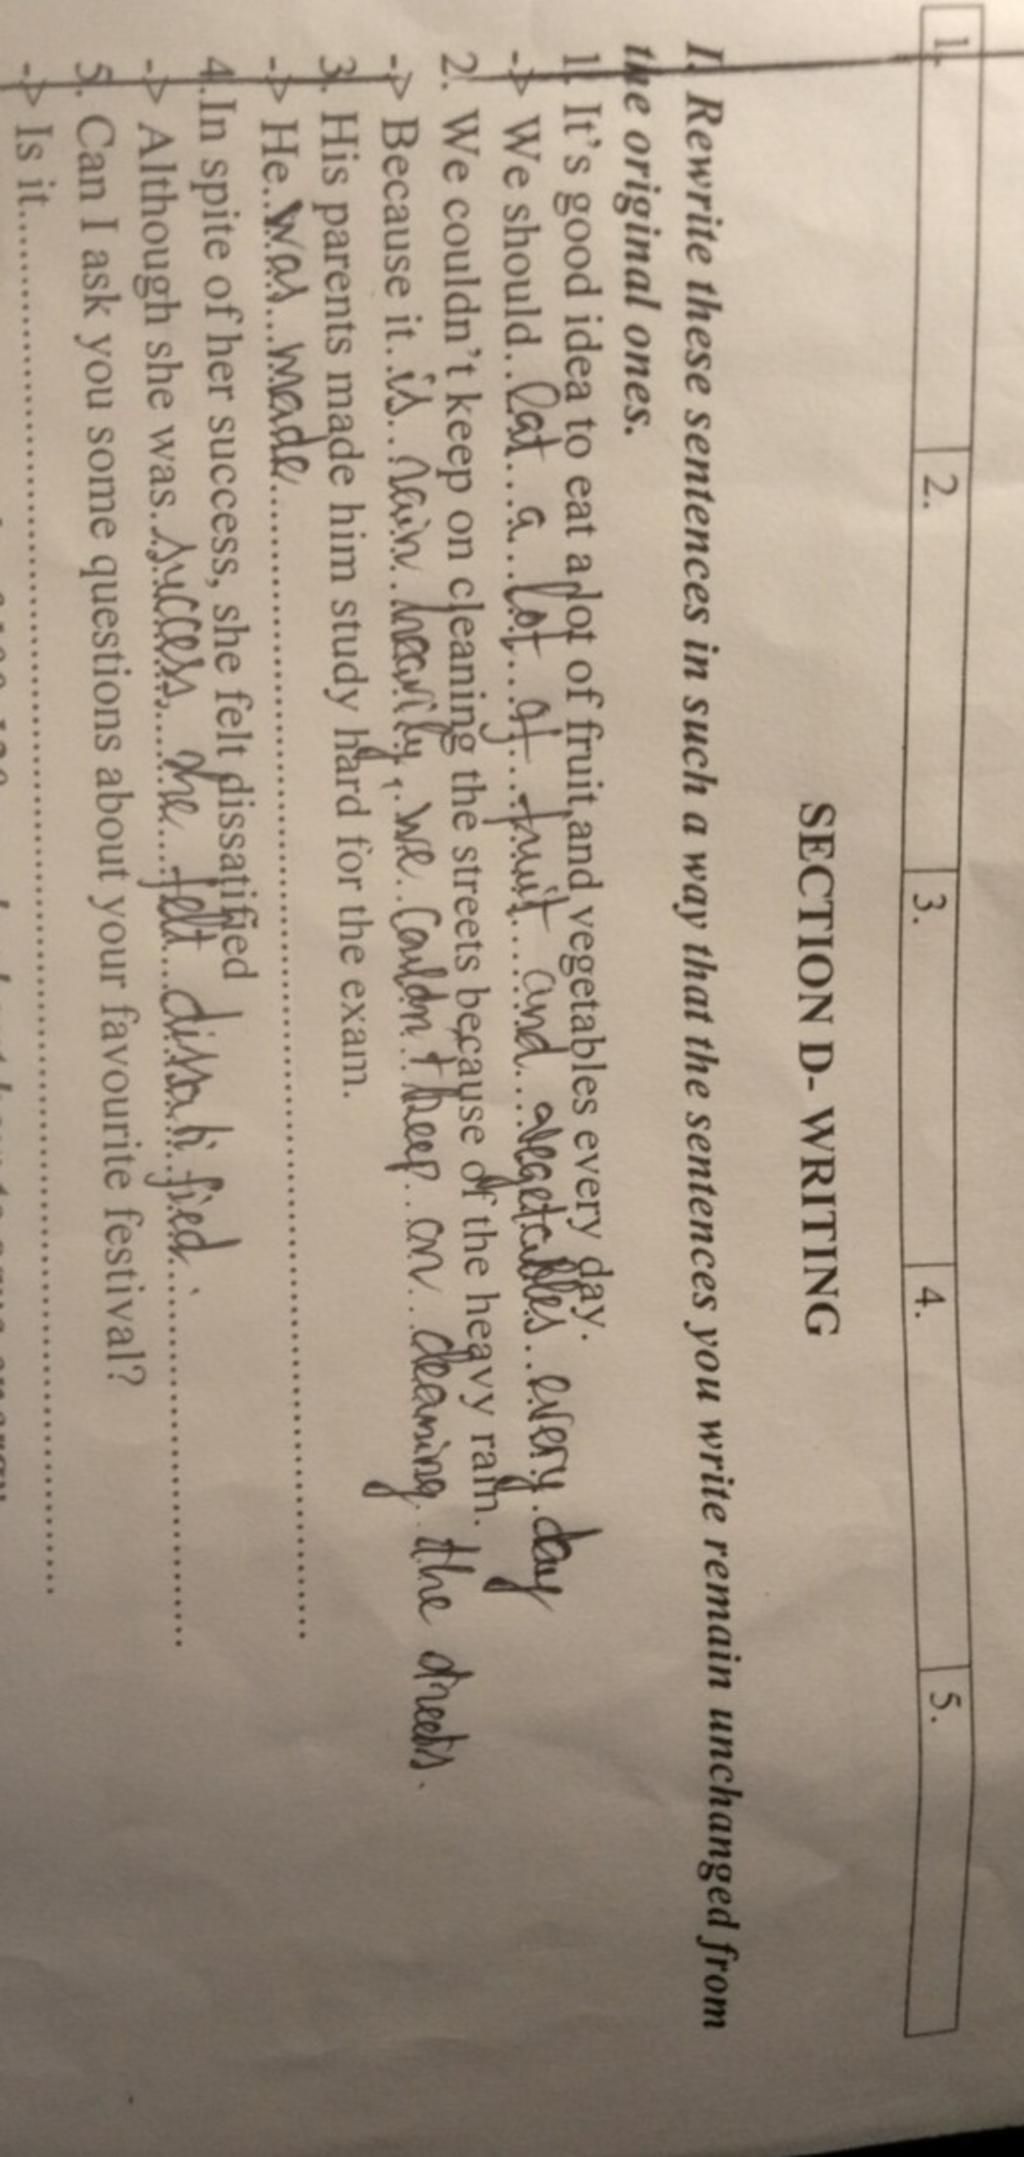 1. 2. 3. 4. 5.
SECTION D- WRITING
I. Rewrite these sentences in such a way that the sentences you write remain unchanged from
the original ones.
1. It's good idea to eat a lot of fruit and vegetables every day.
-> We should..eat...a...lot...of...fruit......and....vegetables..every.day
2. We couldn't keep on cleaning the streets because of the heavy rain.
-> Because it..is..rain..heavily,.we..couldn't keep..on..cleaning.the streets.
3. His parents made him study hard for the exam.
-> He..was...made....................
4.In spite of her success, she felt dissatified
-> Although she was..success......she...felt...dissatified....................
5. Can I ask you some questions about your favourite festival?
-> Is it....................